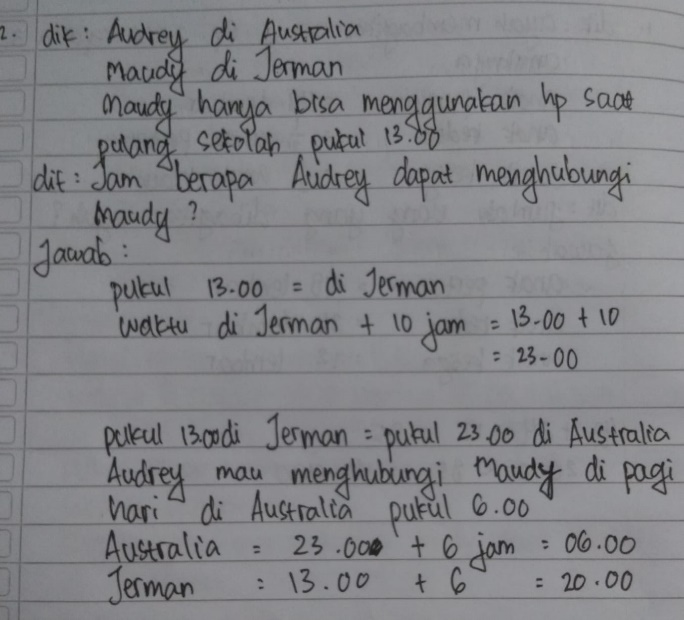 2. dik : Audrey di Australia
Maudy di Jerman
Maudy hanya bisa menggunakan hp saat
pulang sekolah pukul 13.00
dit : Jam berapa Audrey dapat menghubungi
Maudy ?
Jawab :
pukul 13.00 = di Jerman
waktu di Jerman + 10 jam = 13.00 + 10
= 23.00
pukul 13.00 di Jerman = pukul 23.00 di Australia
Audrey mau menghubungi Maudy di pagi
hari di Australia pukul 6.00
Australia = 23.00 + 6 jam = 06.00
Jerman : 13.00 + 6 = 20.00